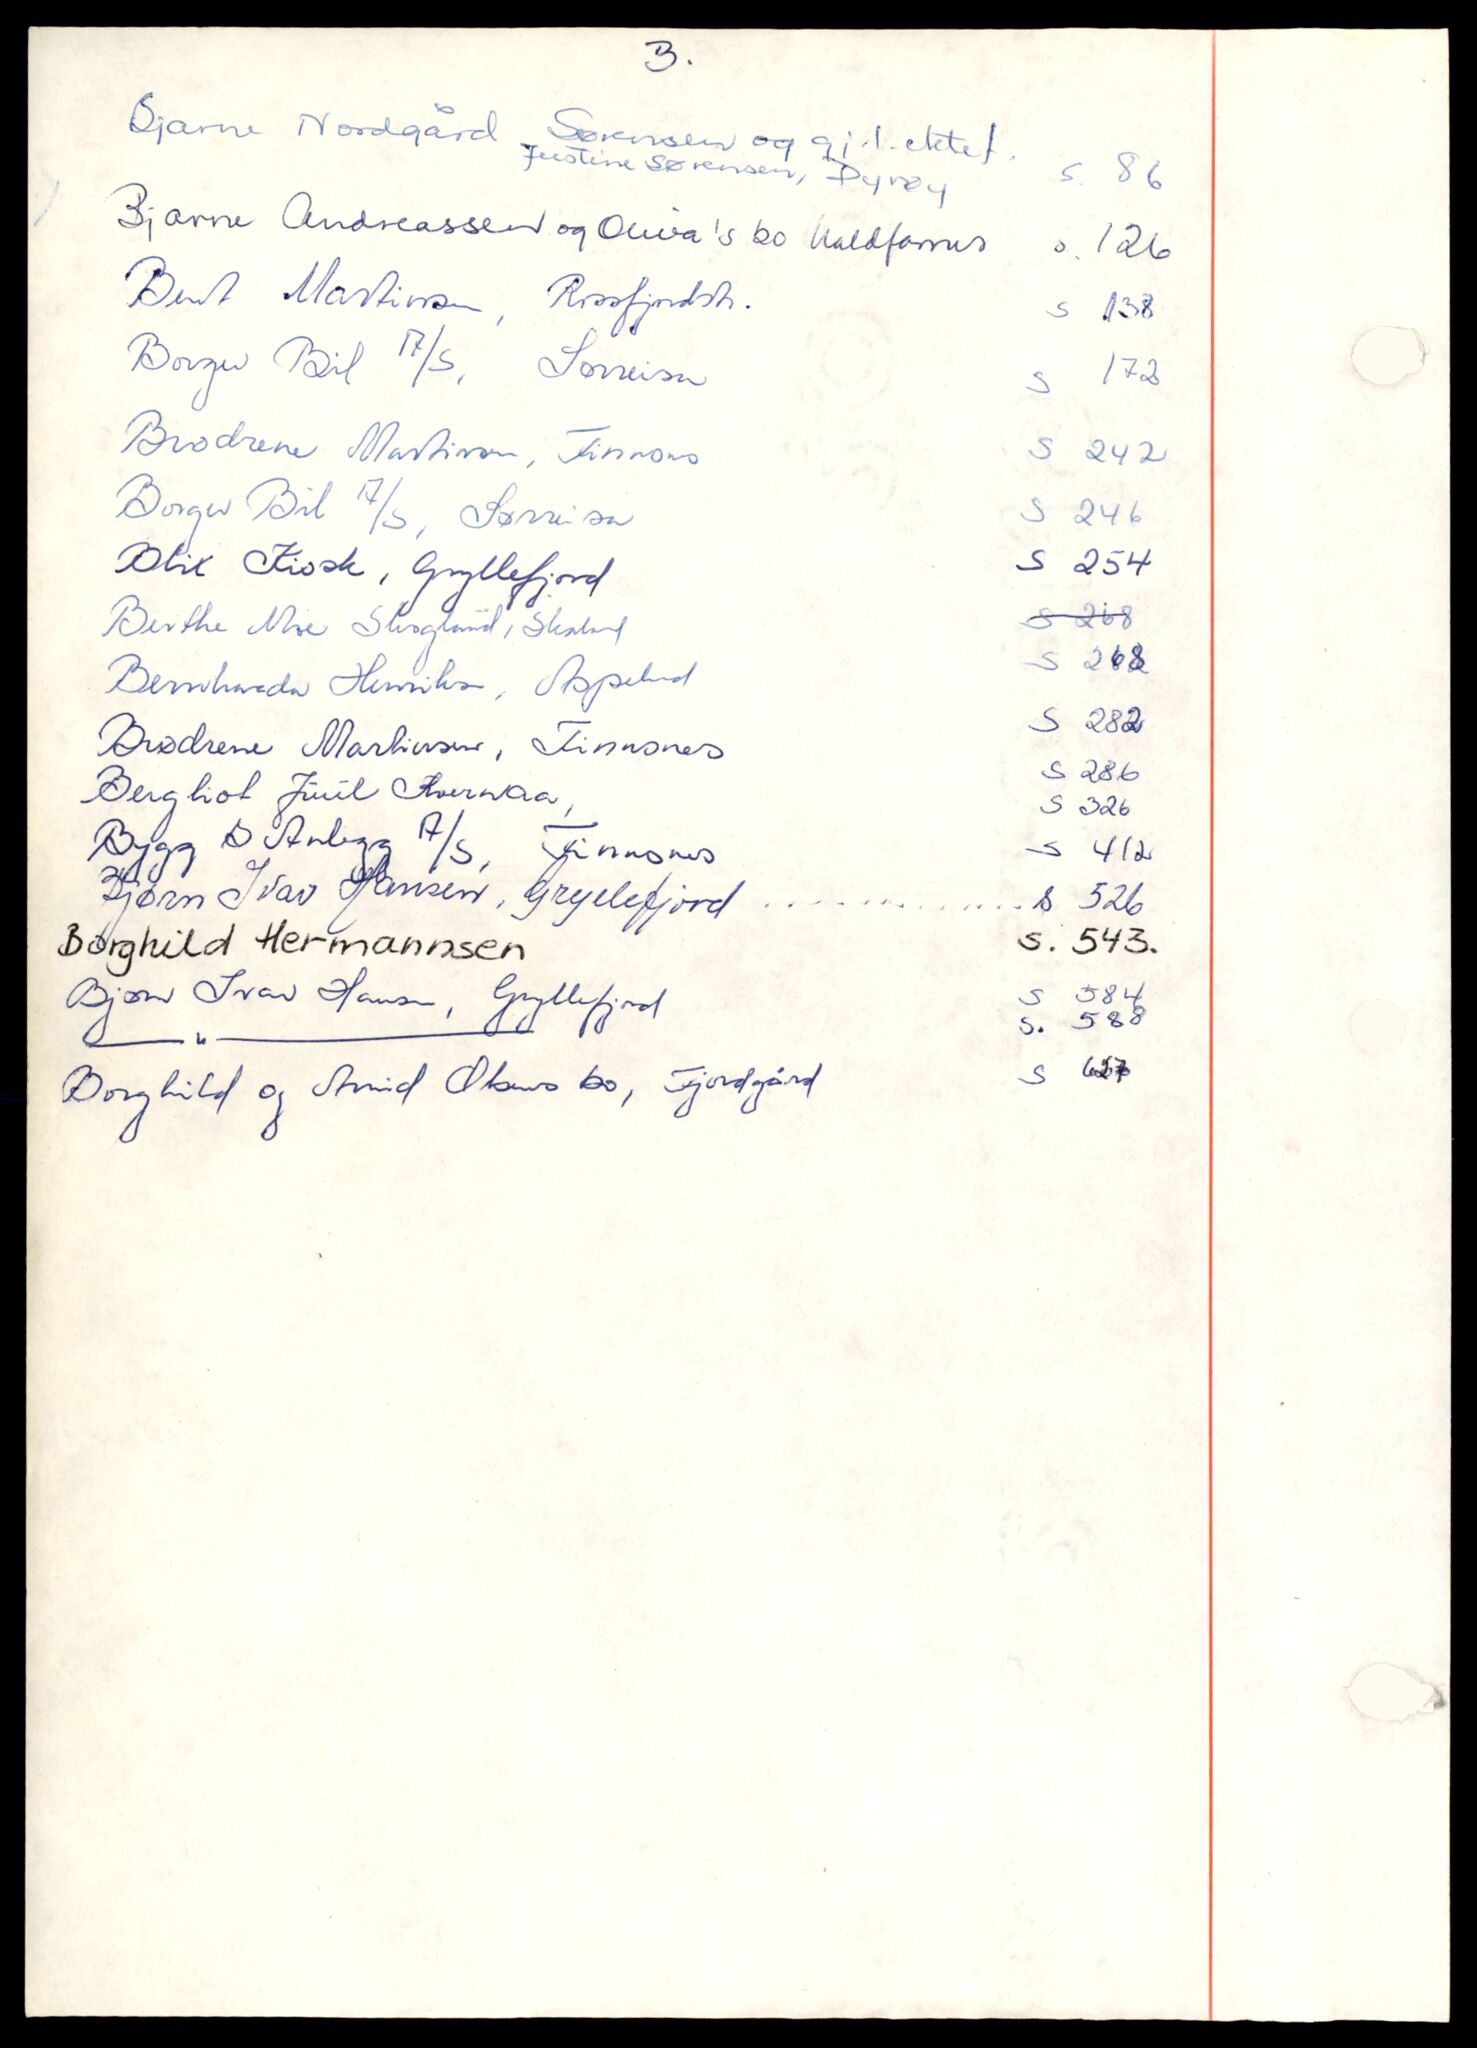 B.
Bjarne Nordgård Sørensen og gj.l. ektef.
Justine Sørensen, Dyrøy s. 86
Bjarne Andreassen og Oliva's bo Kaldfarnes s. 126
Bent Martinsen, Rossfjordstr. s 138
Borger Bil A/S, Sørreisa s 172
Brødrene Martinsen, Finnsnes s 242
Borger Bil A/S, Sørreisa s 246
Blix Kiosk, Gryllefjord s 254
Berthe Moe Skogland, Skaland s 268
Bernharda Henriksen, s 268
Brødrene Martinsen, Finnsnes s 282
Bergliot Juul s 286
s 326
Bygg & Anlegg A/S, Finnsnes s 412
Bjørn Ivar Hansen, Gryllefjord .............. s 526
Borghild Hermannsen s. 543.
Bjørn Ivar Hansen, Gryllefjord s 584
— " — s. 588
Borghild og Arvid Olsens bo, Fjordgård s